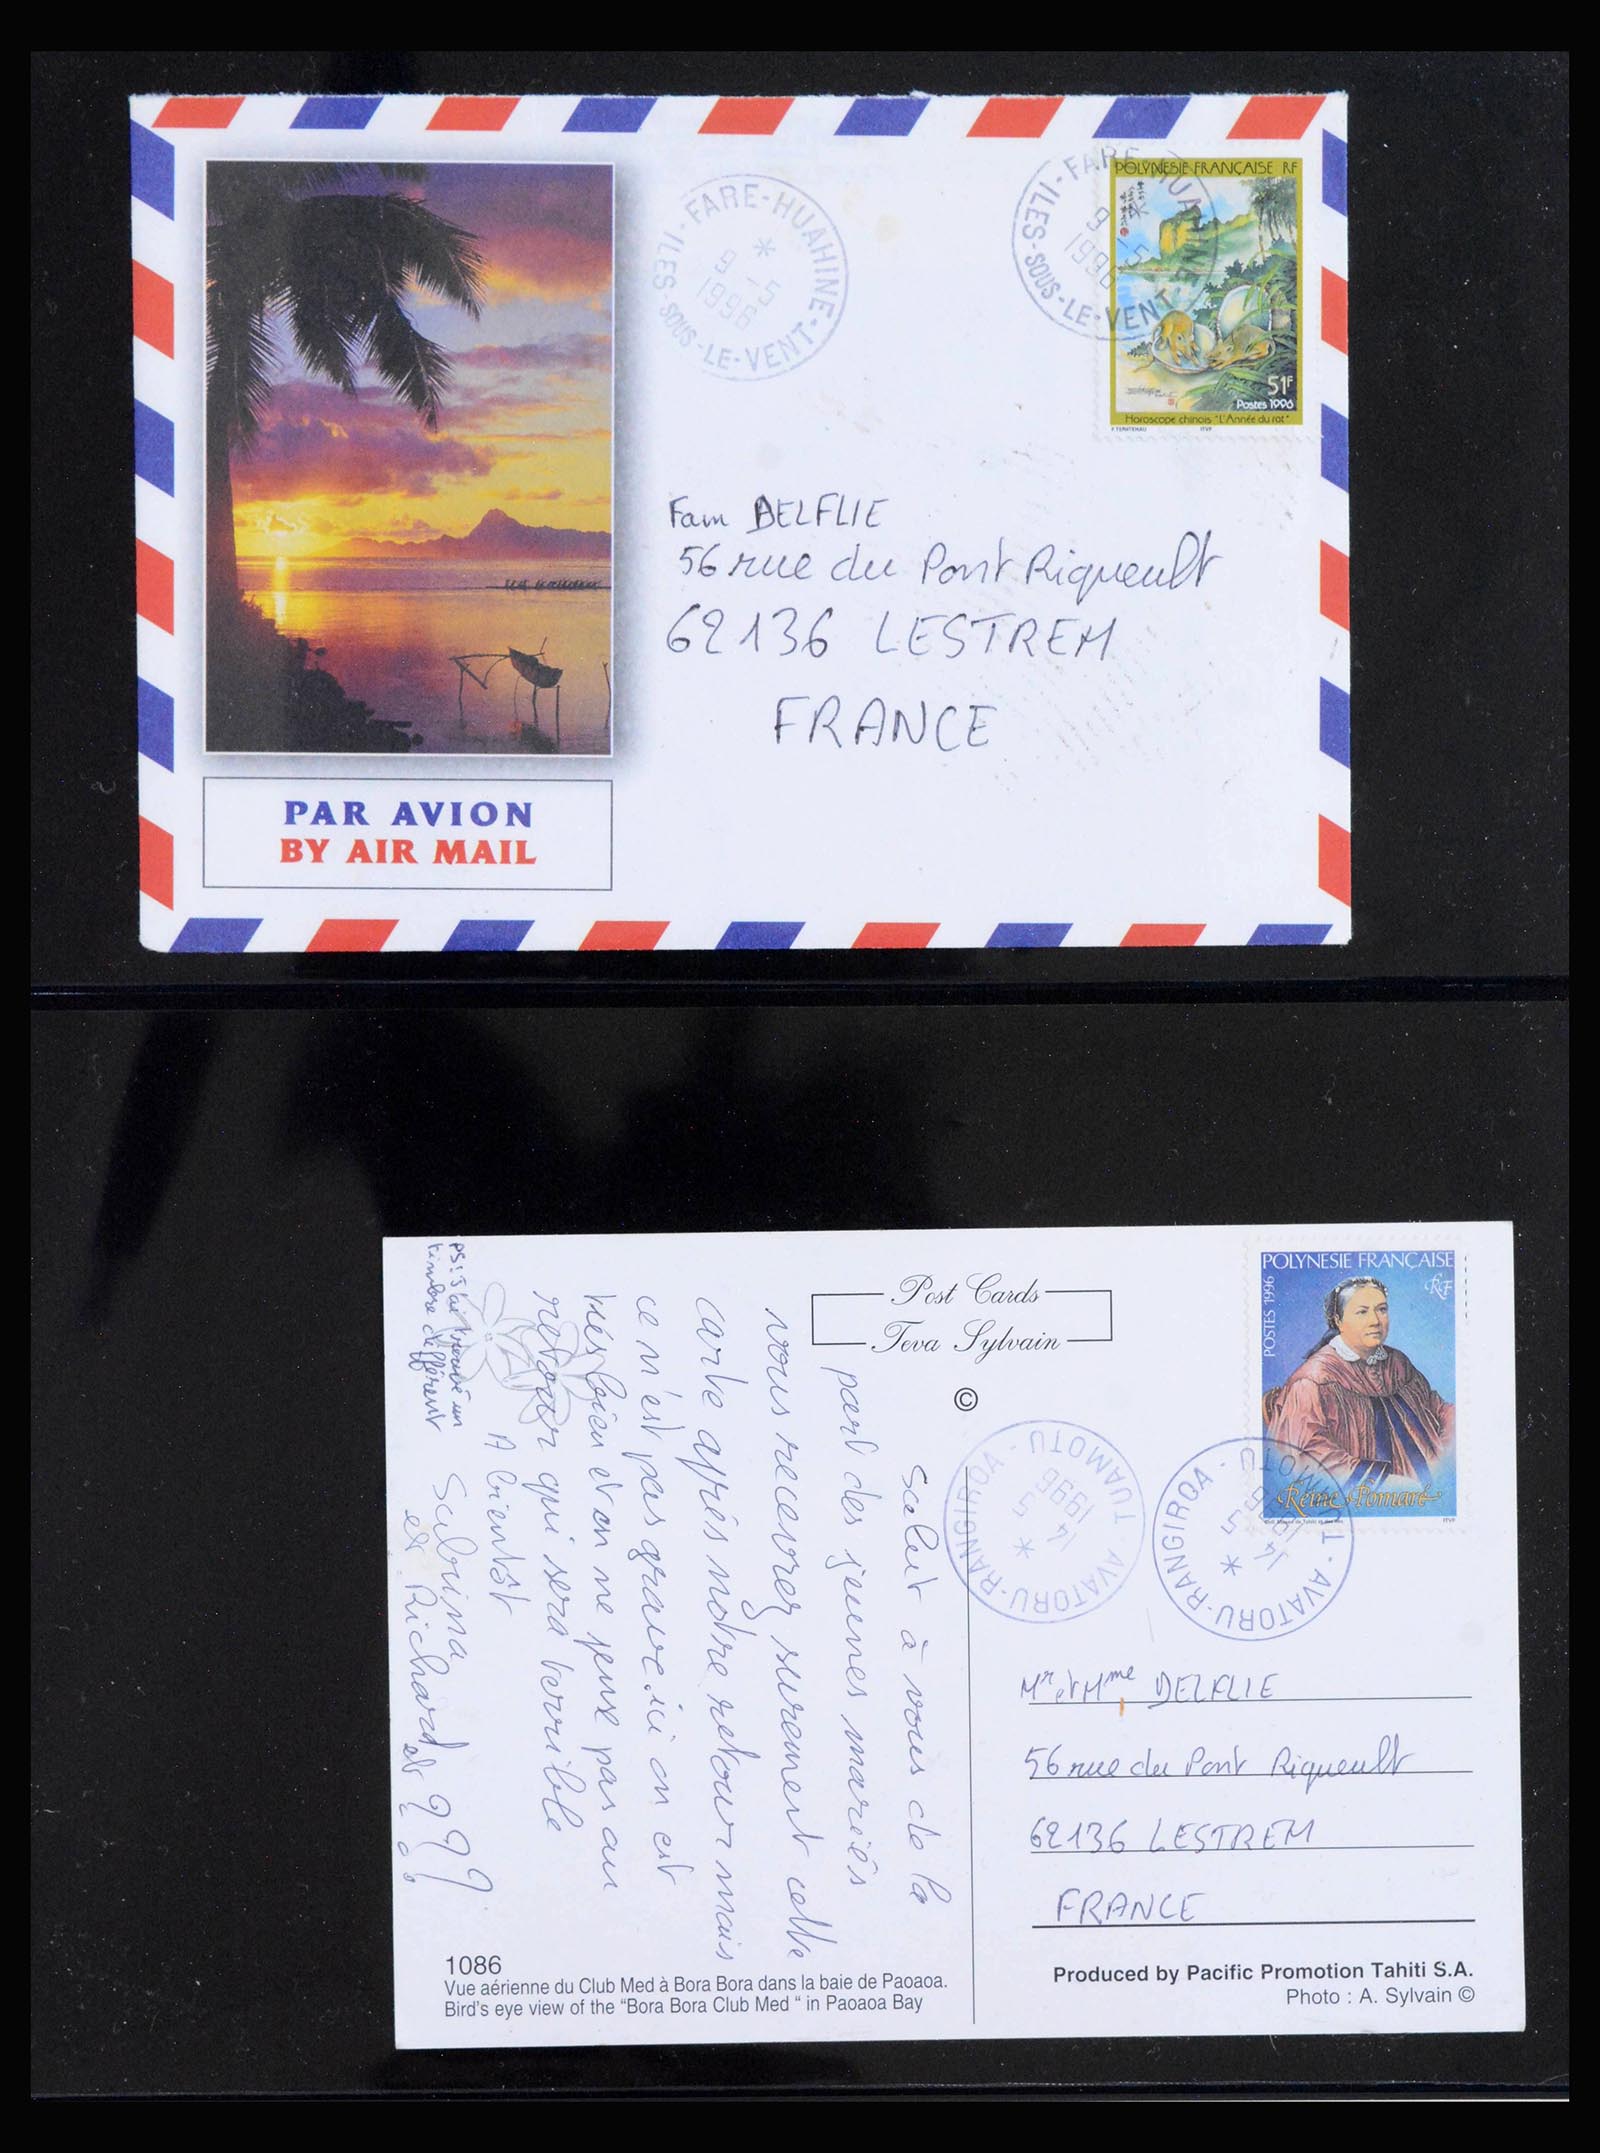 FARE-HUAHINE
9 -5
1996
ILES-SOUS-LE-VENT
FARE-HUAHINE
9 -5
1996
ILES-SOUS-LE-VENT
POLYNESIE FRANÇAISE RF
51F
Postes 1996
Horoscope chinois "L'Année du rat"
ITVF
Fam DELFLIE
56 rue du Pont Riqueult
62136 LESTREM
FRANCE
PAR AVION
BY AIR MAIL
Post Cards
Teva Sylvain
©
POLYNESIE FRANÇAISE
RF
POSTES 1996
Reine Pomaré
ITVF
AVATORU-RANGIROA - TUAMOTU
14 5
1996
AVATORU-RANGIROA - TUAMOTU
14 5
1996
Salut à vous de la
part des jeunes mariés
vous recevrez surement cette
carte après notre retour mais
ce n'est pas grave. ici on est
très bien et on ne pense pas au
retour qui sera terrible
A bientôt
Sabrina
et Richard et
PS: J'ai trouvé un
timbre différent
Mr et Mme DELFLIE
56 rue du Pont Riqueult
62136 LESTREM
FRANCE
1086
Vue aérienne du Club Med à Bora Bora dans la baie de Paoaoa.
Bird's eye view of the "Bora Bora Club Med " in Paoaoa Bay
Produced by Pacific Promotion Tahiti S.A.
Photo : A. Sylvain ©